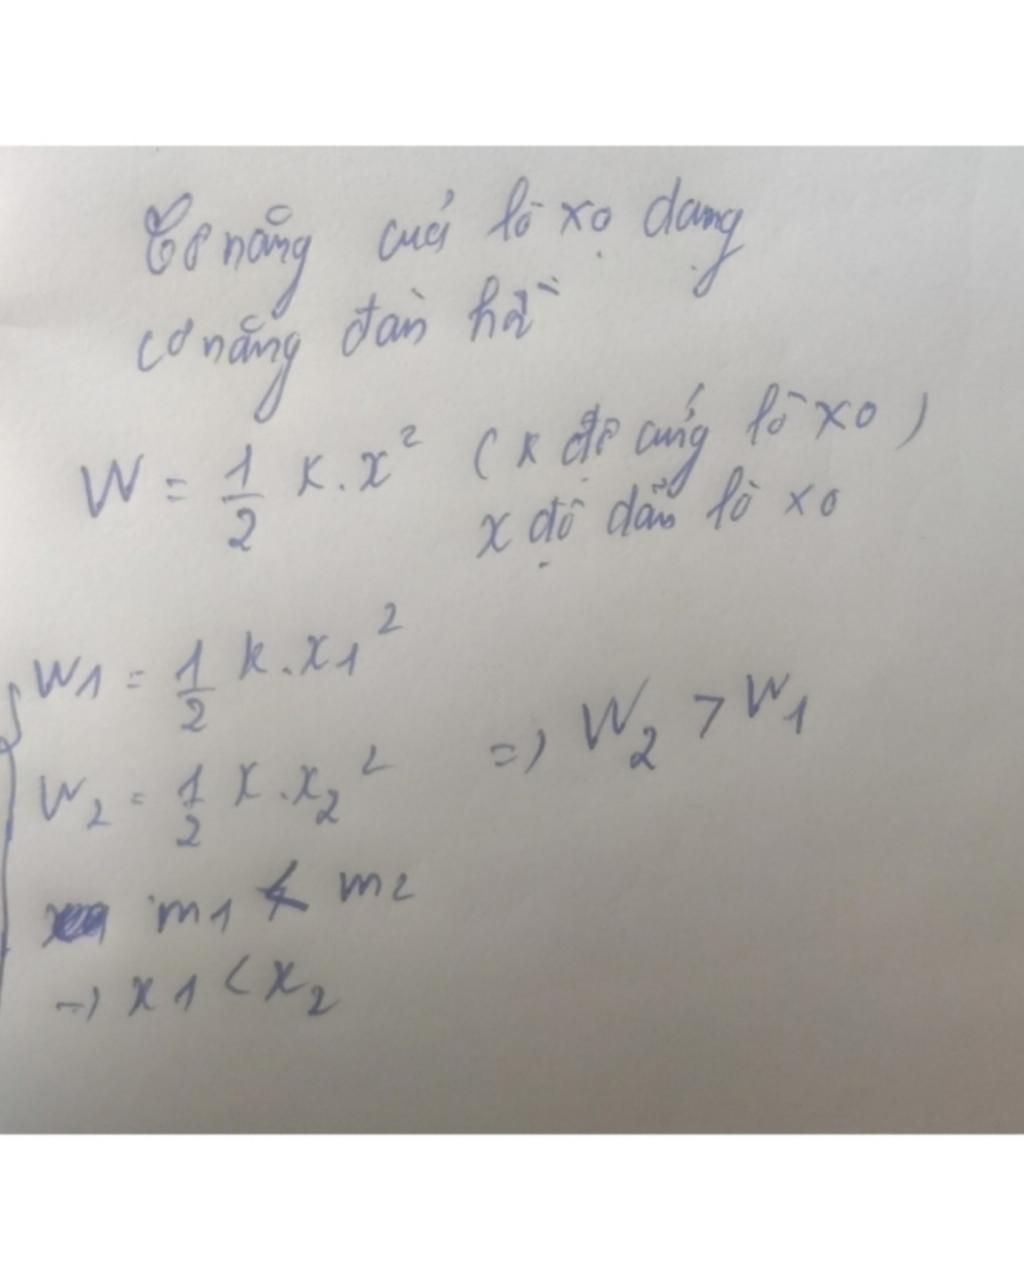 Cơ năng của lò xo dạng
cơ năng đàn hồi
W = 1/2 k.x² (k độ cứng lò xo)
x độ dãn lò xo
W1 = 1/2 k.x1²
W2 = 1/2 k.x2² => W2 > W1
m1 < m2
-> x1 < x2